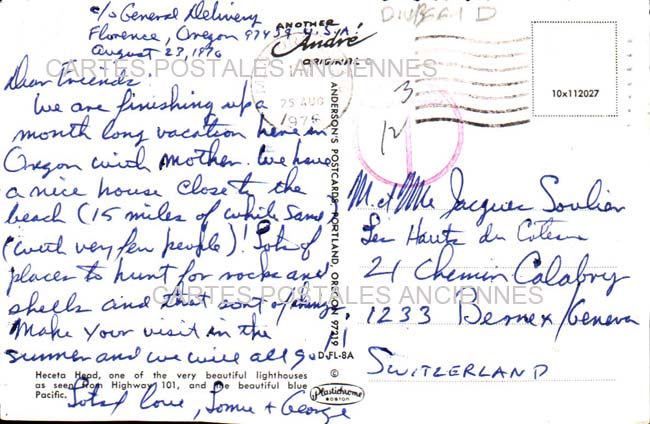 c/o General Delivery
Florence, Oregon 97439 U.S.A.
August 23, 1976
Dear Friends:
We are finishing up a
month long vacation here in
Oregon with mother. We have
a nice house close to the
beach (15 miles of white sand
(with very few people)! Lots of
places to hunt for rocks and
shells and that sort of thing.
Make your visit in the
summer and we will all go!!
Heceta Head, one of the very beautiful lighthouses
as seen from Highway 101, and the beautiful blue
Pacific.
Lots of love, & George
ANOTHER
André
ORIGINAL
ANDERSON'S POSTCARDS, PORTLAND, OREGON 97219
D-FL-8A
©
Plastichrome
BOSTON
25 AUG
1976
3
12
10x112027
M. et Mme Jacques Soulier
Les Hauts du Coteau
21 Chemin Calabry
1233 Bernex/Geneva
SWITZERLAND
CARTES POSTALES ANCIENNES
CARTES POSTALES ANCIENNES